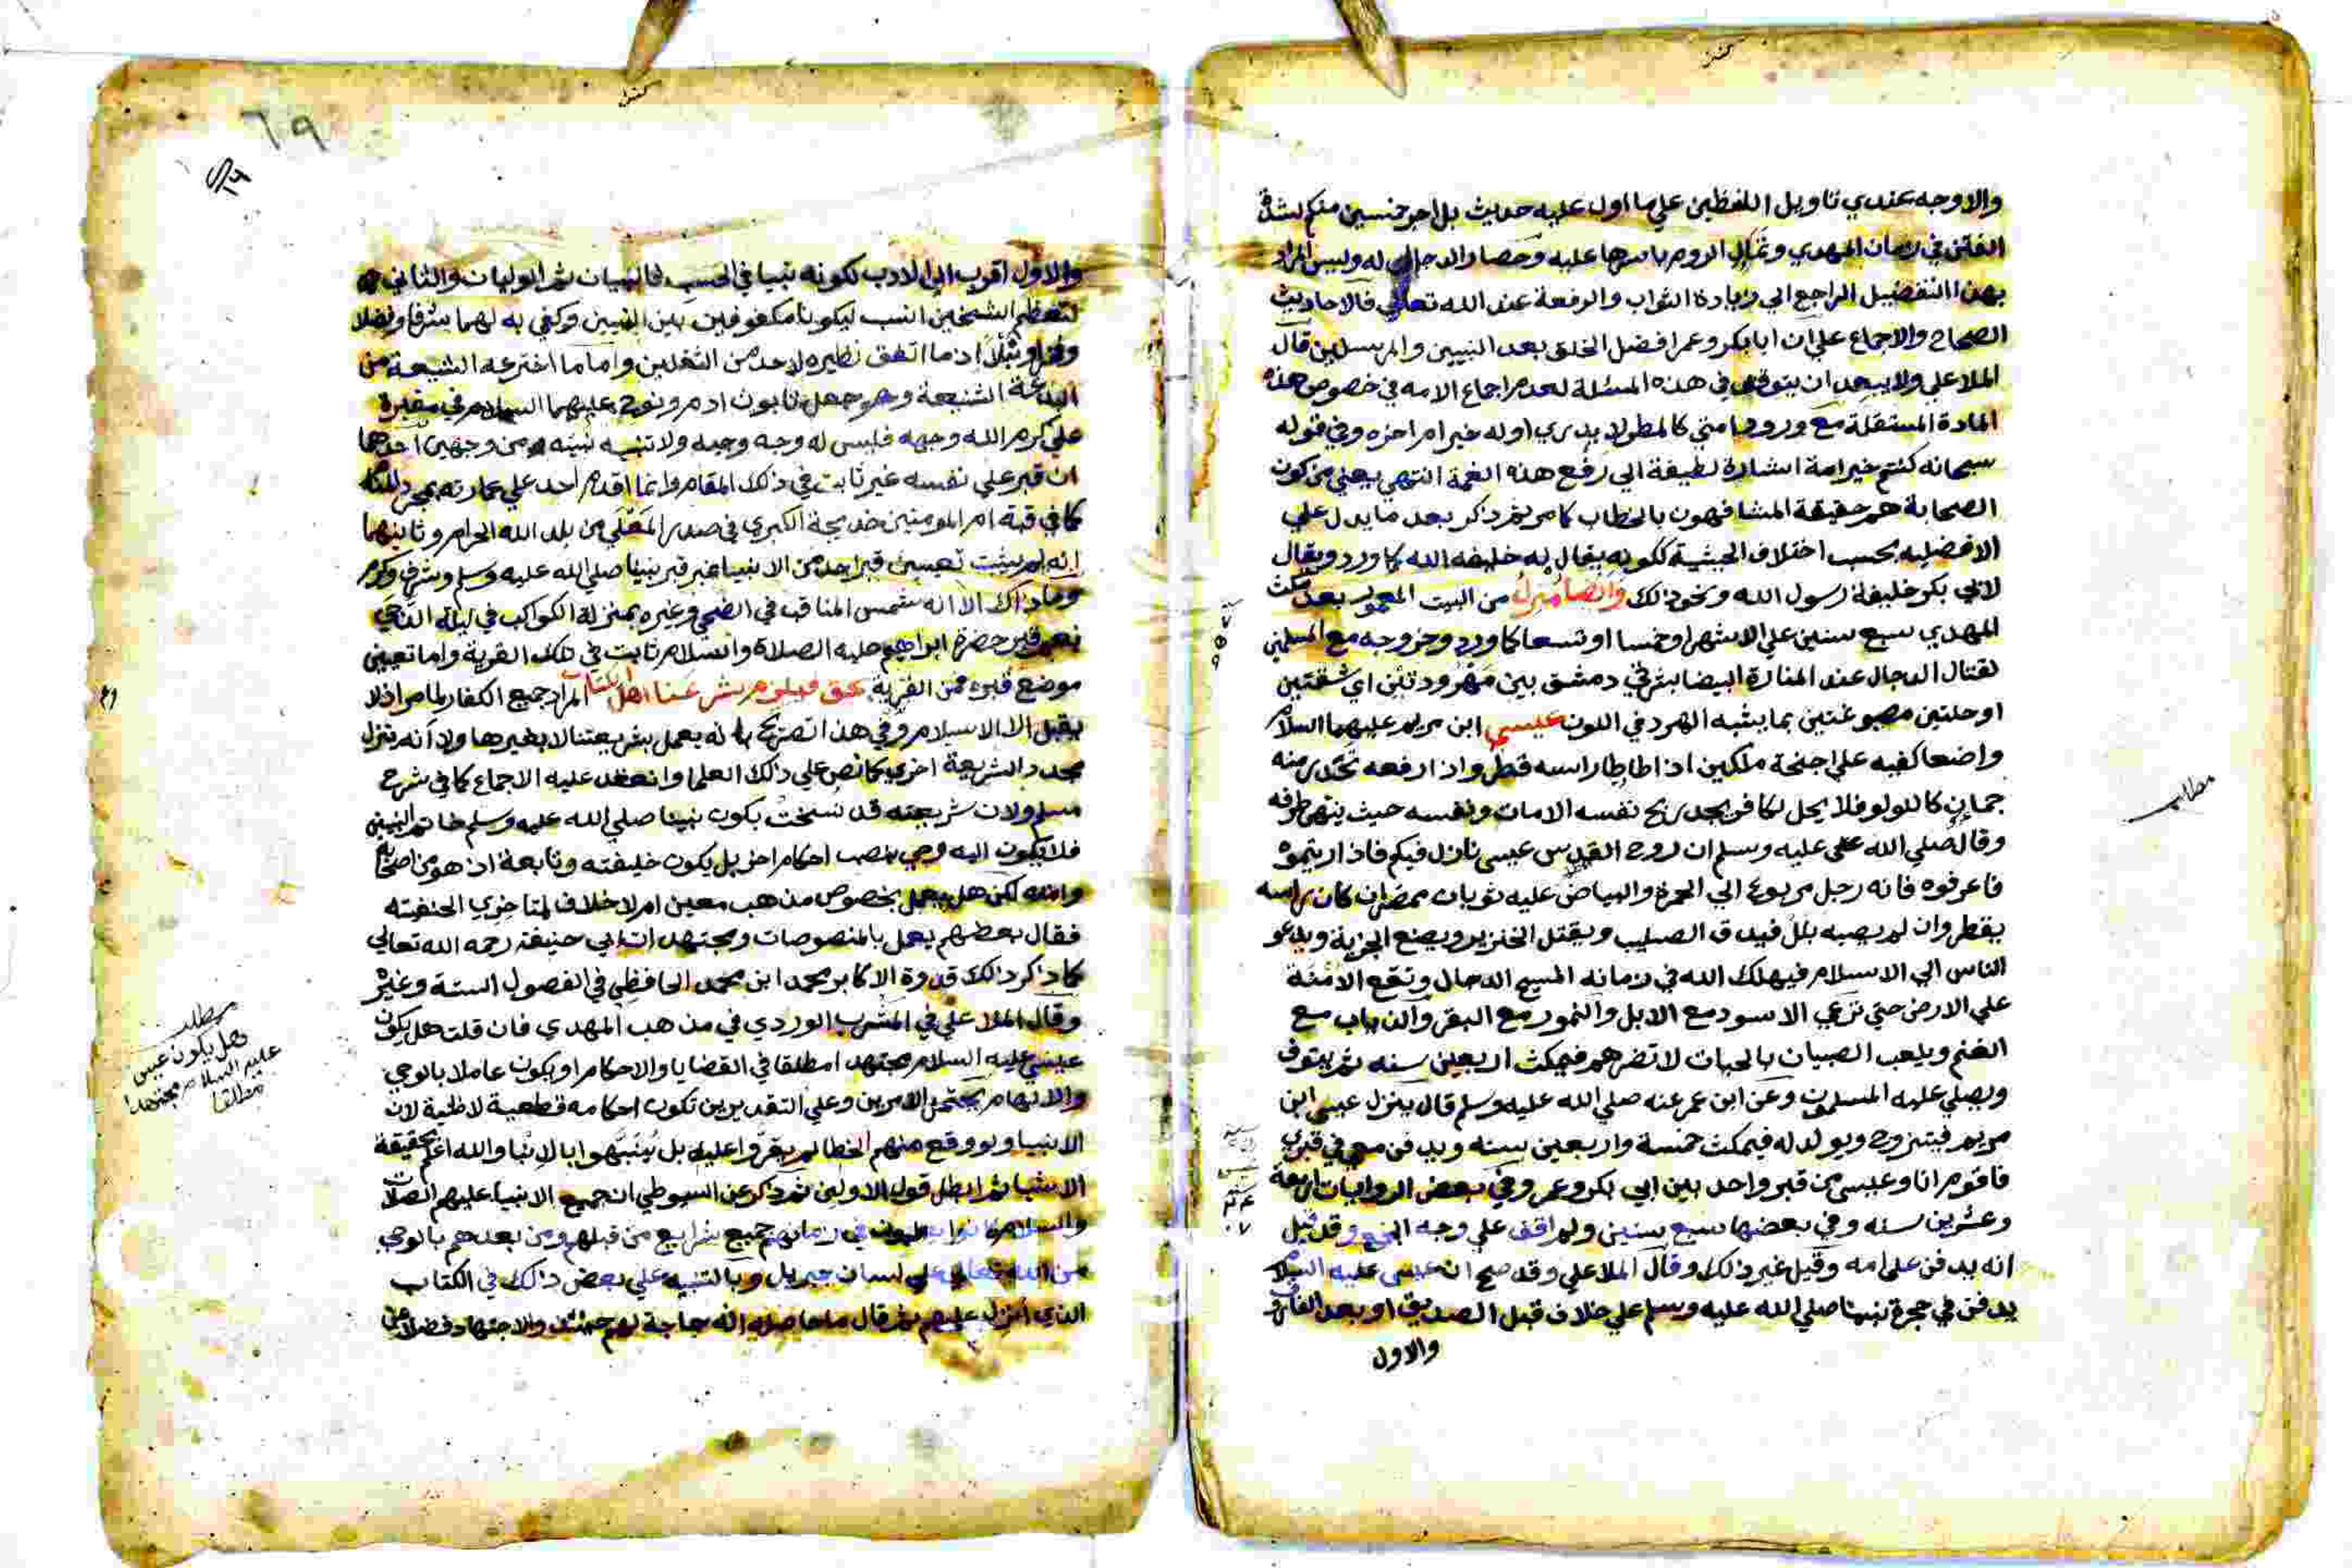 والاوجه عندي تاويل اللفظين علي ما اول عليه حديث بل اجر خمسين منكم لشدة
الفتن في زمان المهدي وتمالي الروم باسرها عليه وحصار الدجال له وليس المراد
بهذا التفضيل الراجع الي زيادة الثواب والرفعة عند الله تعالي فالاحاديث
الصحاح والاجماع علي ان ابا بكر وعمر افضل الخلق بعد النبيين والمرسلين قال
الملا علي ولا يبعد ان يتوقف في هذه المسئلة لعدم اجماع الامه في خصوص هذه
المادة المستقلة مع ورود امتي كالمطر لا يدري اوله خير ام اخره وفي قوله
سبحانه كنتم خير امة اشارة لطيفة الي رفع هذه الغمة انتهي يعني من كون
الصحابة هم حقيقة المشافهون بالخطاب كما مر ثم ذكر بعد ما يدل علي
الافضليه بحسب اختلاف الحيثية ككونه يقال له خليفه الله كما ورد ويقال
لابي بكر خليفة رسول الله ونحو ذلك وايضا منزل من البيت المعمور بعد مكث
المهدي سبع سنين علي الاشهر او خمسا او تسعا كما ورد وخروجه مع المسلمين
لقتال الدجال عند المنارة البيضا بشرقي دمشق بين مهرودتين اي شقتين
او حلتين مصبوغتين بما يشبه الهرد في اللون عيسي ابن مريم عليهما السلام
واضعا كفيه علي اجنحة ملكين اذا طاطا راسه قطر واذا رفعه تحدر منه
جمان كاللولو فلا يحل لكافر يجد ريح نفسه الا مات ونفسه حيث ينتهي طرفه
وقال صلي الله علي عليه وسلم ان روح القدس عيسي نازل فيكم فاذا رايتموه
فاعرفوه فانه رجل مربوع الي الحمرة والبياض عليه ثوبان ممصران كان راسه
يقطر وان لم يصبه بلل فيدق الصليب ويقتل الخنزير ويضع الجزية ويدعو
الناس الي الاسلام فيهلك الله في زمانه المسيح الدجال وتقع الامنة
علي الارض حتي ترعي الاسود مع الابل والنمور مع البقر والذياب مع
الغنم ويلعب الصبيان بالحيات لا تضرهم فيمكث اربعين سنه ثم يتوفي
ويصلي عليه المسلمون وعن ابن عمر عنه صلي الله عليه وسلم قال ينزل عيسي ابن
مريم فيتزوج ويولد له فيمكث خمسة واربعين سنه ويدفن معي في قبري
فاقوم انا وعيسي من قبر واحد بين ابي بكر وعمر وفي بعض الروايات اربعة
وعشرين سنه وفي بعضها سبع سنين ولم اقف علي وجه الجمع وقد قيل
انه يدفن علي امه وقيل غير ذلك وقال الملا علي وقد صح ان عيسي عليه السلام
يدفن في حجرة نبينا صلي الله عليه وسلم علي خلاف قبل الصديق او بعد الفاروق
والاول
مطلب
٦٩
والاول اقرب الي الادب لكونه نبيا في الحسب فالنبيان ثم الوليان والثاني
لتعظيم الشيخين انسب ليكونا مكنوفين بين النبيين وكفي به لهما شرفا وفضلا
اذ ما اتفق نظيره لاحد من الثقلين واما ما اخترعه الشيعة من
البدعة الشنيعة وهو جعل تابوت ادم ونوح عليهما السلام في مقبرة
علي كرم الله وجهه فليس له وجه وجيه ولا تنبيه نبيه من وجهين احدهما
ان قبر علي نفسه غير ثابت في ذلك المقام وانما اقدم احد علي عمارته بمجرد المنام
كما في قبة ام المومنين خديجة الكبري في صدر المعلي من بلد الله الحرام وثانيهما
انه لم يثبت تعيين قبر احد من الانبيا غير قبر نبينا صلي الله عليه وسلم وشرف وكرم
وما ذاك الا انه شمس المناقب في الضحي وغيره بمنزلة الكواكب في ليلة الدجي
نعم قبر حضرة ابراهيم عليه الصلاة والسلام ثابت في تلك القرية واما تعيين
موضع قبره من القرية بشرعنا اهل الكتاب المراد جميع الكفار لما مر اذ لا
يقبل الا الاسلام وفي هذا تصريح بانه يعمل بشريعتنا لا بغيرها ولا انه ينزل
مجددا لشريعة اخري كما نص علي ذلك العلما وانعقد عليه الاجماع كما في شرح
مسلم ولان شريعته قد نسخت بكون نبينا صلي الله عليه وسلم خاتم النبيين
فلا يكون اليه وحي بنصب احكام اخر بل يكون خليفته وتابعة اذ هو من اصحابه
وامته لكن هل يعمل بخصوص مذهب معين ام لا خلاف لمتاخري الحنفيته
فقال بعضهم يعمل بالمنصوصات ومجتهدات ابي حنيفة رحمه الله تعالي
كما ذكر ذلك قدوة الاكابر محمد ابن محمد الحافظي في الفصول الستة وغيره
وقال الملا علي في المشرب الوردي في مذهب المهدي فان قلت هل يكون
عيسي عليه السلام مجتهدا مطلقا في القضايا والاحكام او يكون عاملا بالوحي
والالهام يحتمل الامرين وعلي التقديرين تكون احكامه قطعية لا ظنية لان
الانبيا ولو وقع منهم الخطا لم يقروا عليه بل ينبهوا بالانبا والله اعلم بحقيقة
الاشيا ثم ابطل قول الاولين ثم ذكر عن السيوطي ان جميع الانبيا عليهم الصلاة
والسلام كانوا يعلمون في زمانهم جميع شرايع من قبلهم ومن بعدهم بالوحي
من الله تعالي علي لسان جبريل وبالتنبيه علي بعض ذلك في الكتاب
الذي انزل عليهم ثم قال ما حاصله انه حاجة لهم حينئذ والاجتهاد فضلا من
مطلب
هل يكون عيسي
عليه السلام مجتهدا
مطلقا